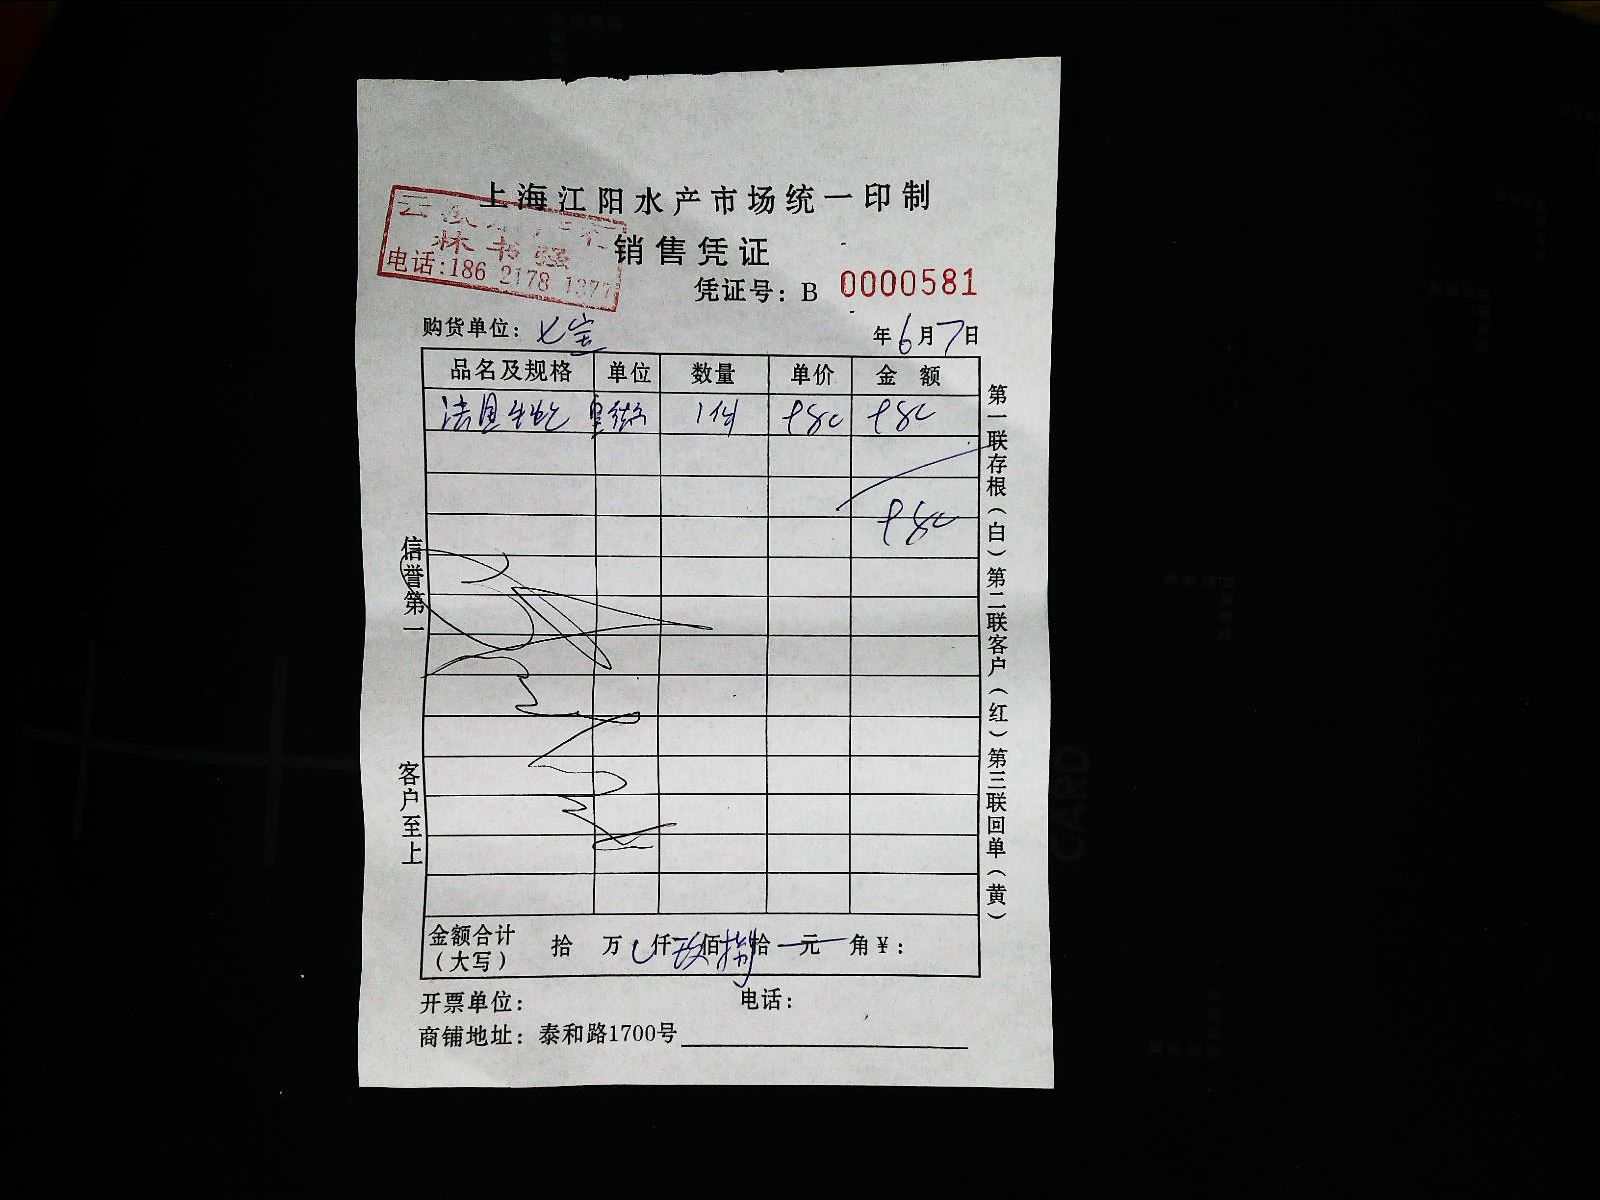 上海江阳水产市场统一印制
林书强
电话:186 2178 1377
销售凭证
凭证号: B 0000581
购货单位: 七宝
年6月7日
品名及规格 单位 数量 单价 金 额
法国生蚝 1份 980 980
980
信誉第一
客户至上
第一联存根(白)第二联客户(红)第三联回单(黄)
金额合计(大写) 拾 万 仟玖佰捌拾 元 角¥:
开票单位: 电话:
商铺地址: 泰和路1700号